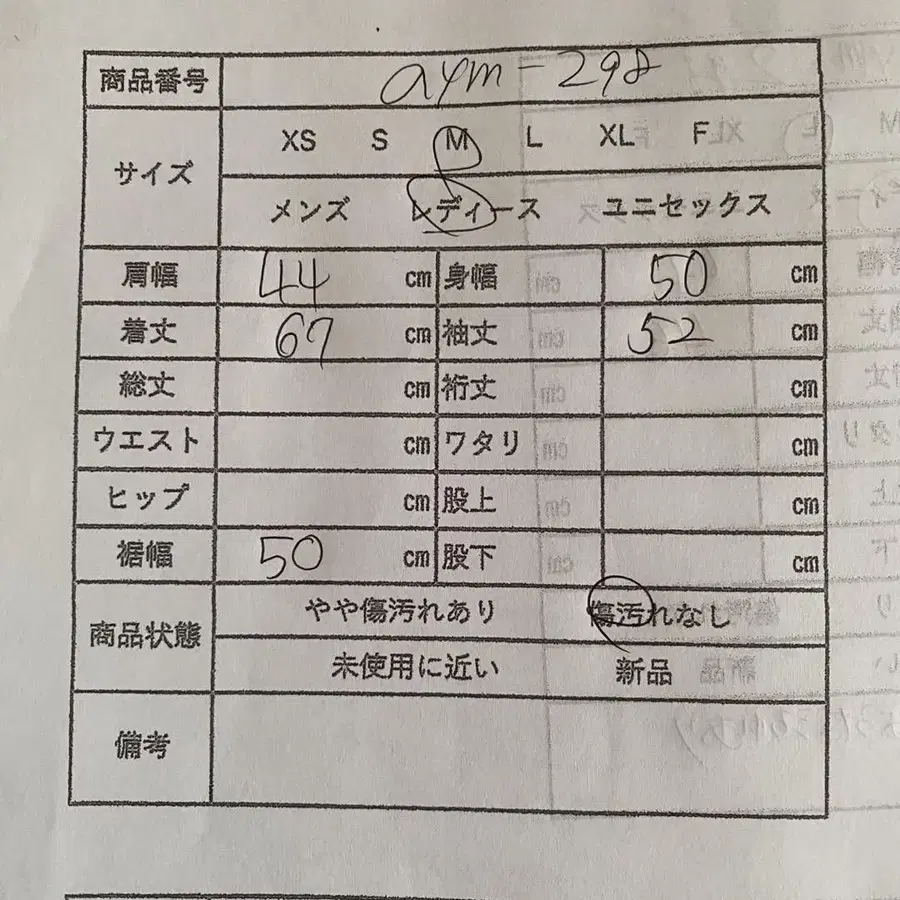 商品番号 aym-298
サイズ XS S M L XL F
メンズ レディース ユニセックス
肩幅 44 cm 身幅 50 cm
着丈 67 cm 袖丈 52 cm
総丈 cm 裄丈 cm
ウエスト cm ワタリ cm
ヒップ cm 股上 cm
裾幅 50 cm 股下 cm
商品状態 やや傷汚れあり 傷汚れなし
未使用に近い 新品
備考